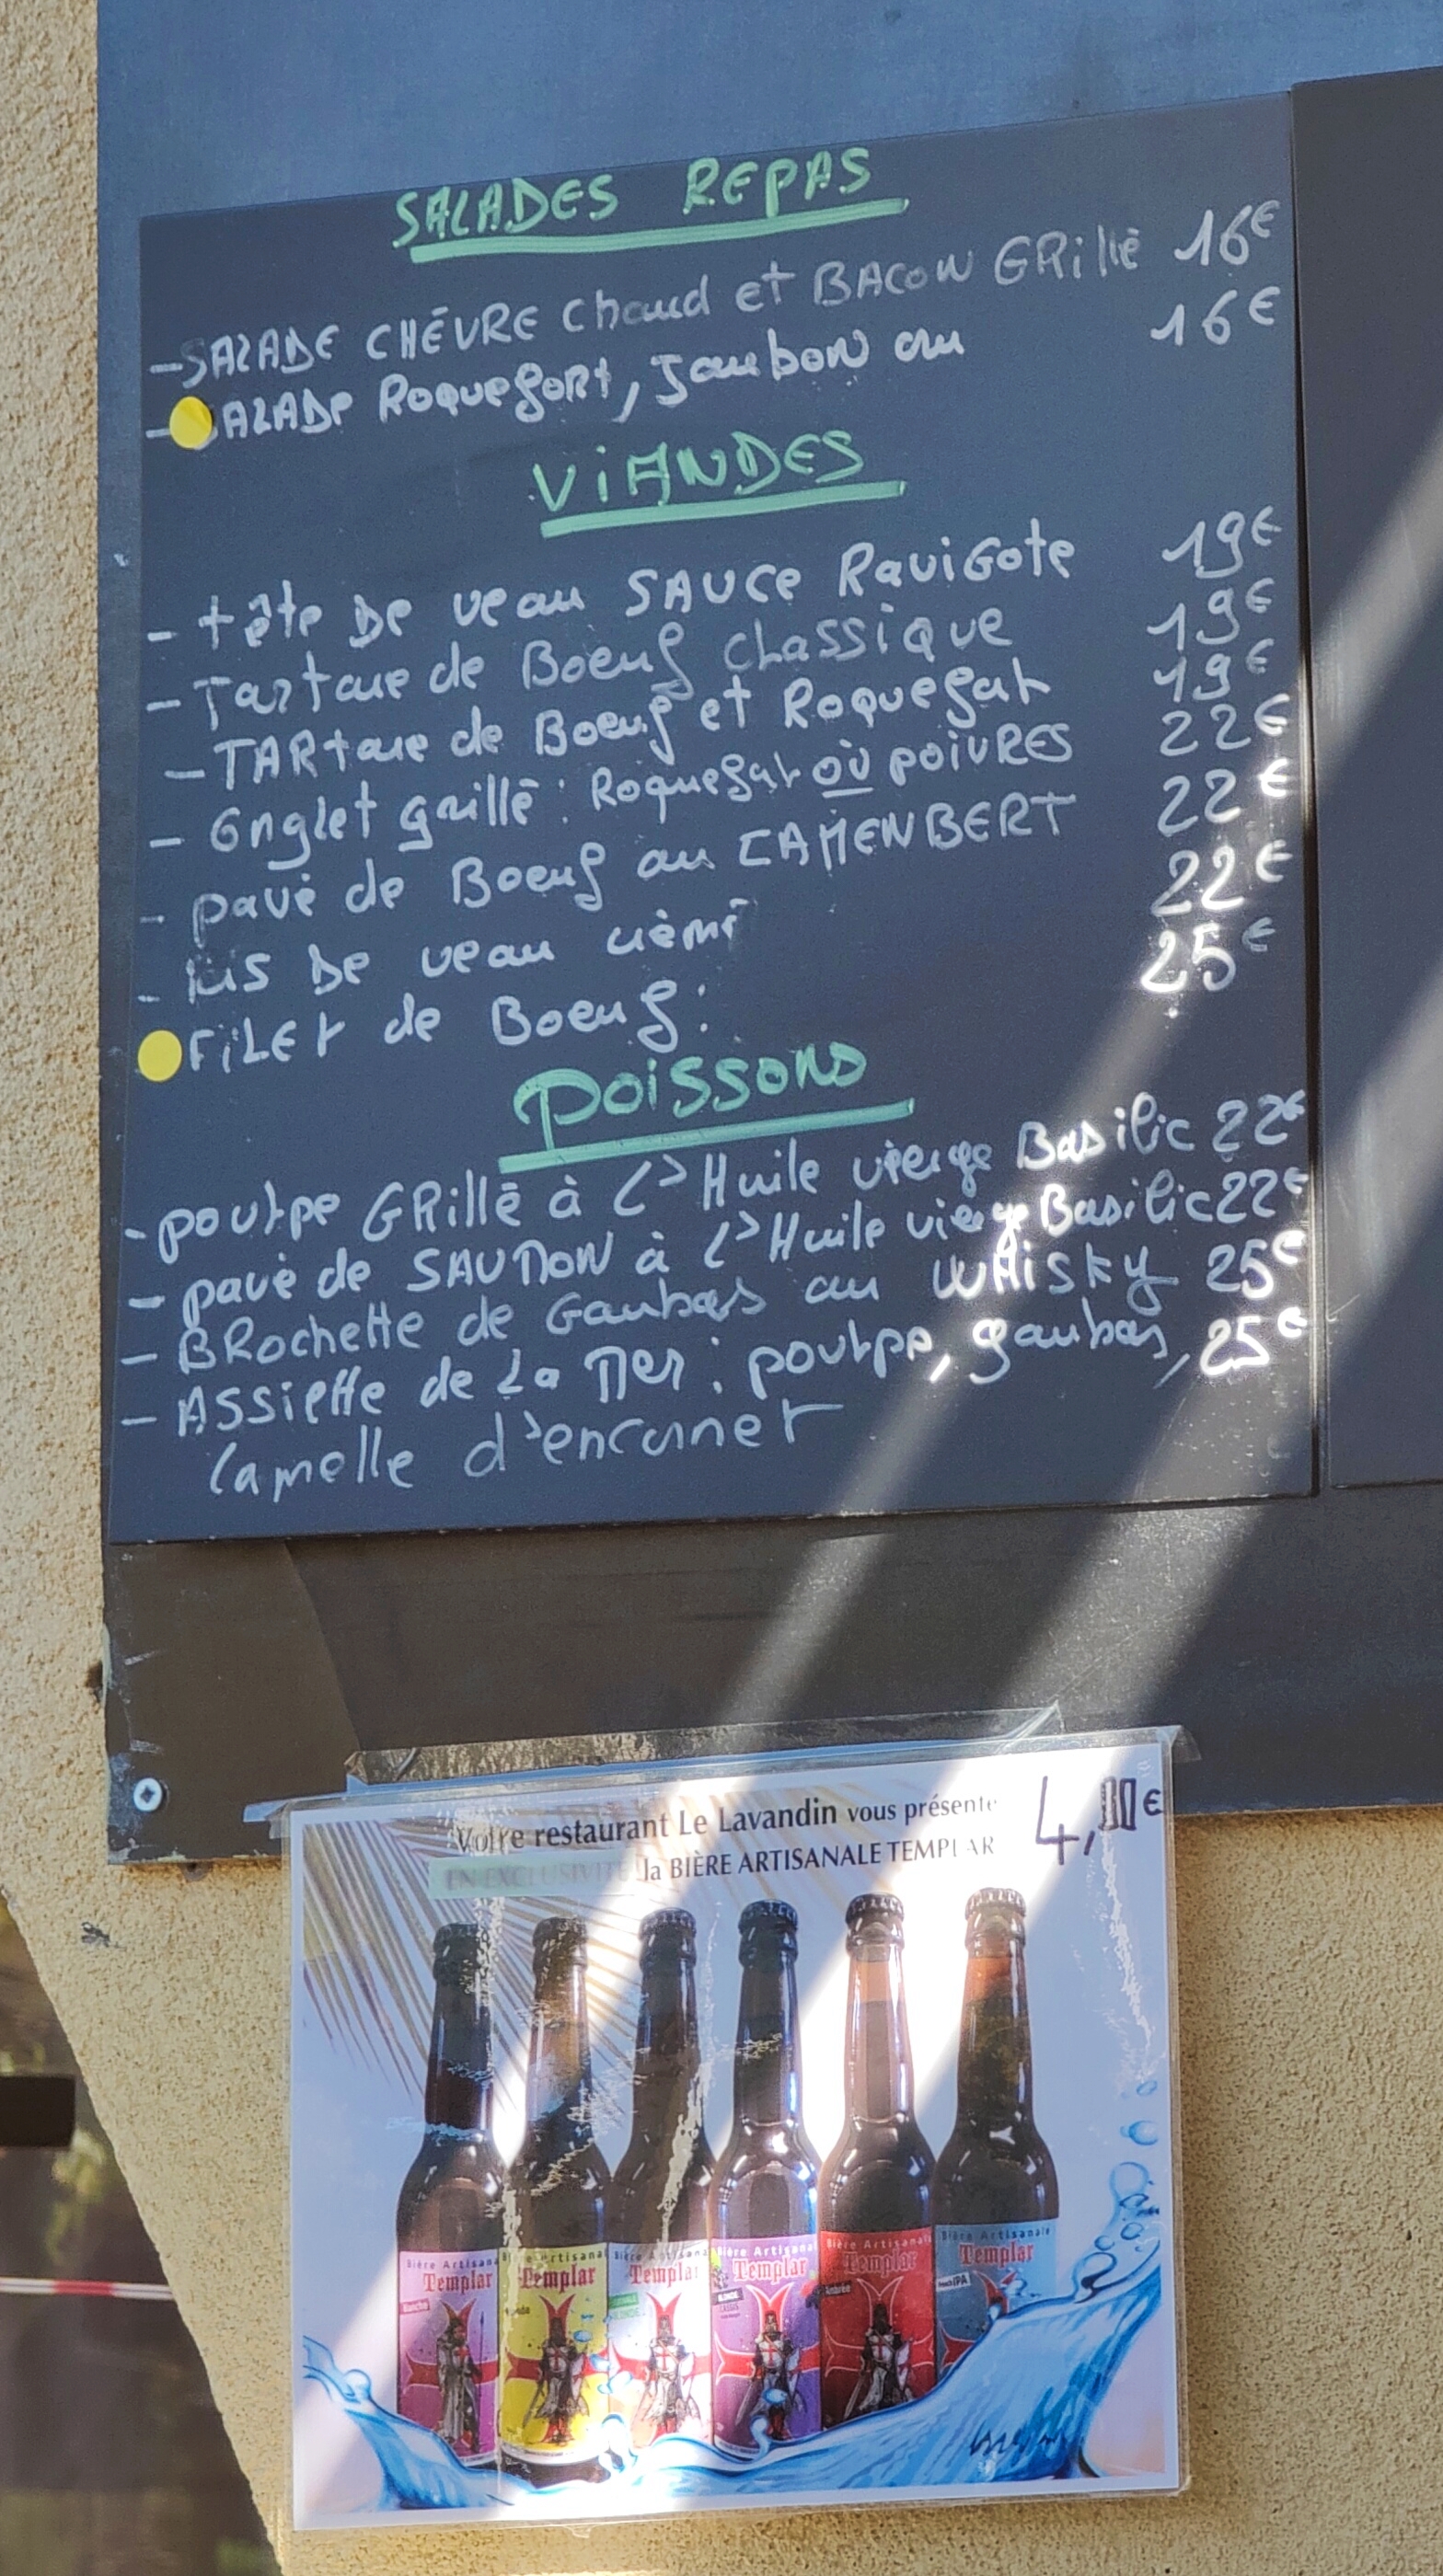 SALADES REPAS
- SALADE CHÉVRE chaud et BACON GRillé 16€
- SALADE Roquefort, Jambon cru 16€
ViANDES
- tête De veau SAUCe RaviGote 19€
- Tartare de Boeuf classique 19€
- TARtare de Boeuf et Roquefort 19€
- Onglet grillé : Roquefort où poivRES 22€
- pavé de Boeuf au CAMENBERT 22€
- Ris De veau crème 22€
FiLEt de Boeuf : 25€
poissons
- poulpe GRillé à L'Huile vierge Basilic 22€
- pavé de SAUMON à L'Huile vierge Basilic 22€
- BRochette de Gambas au WHisky 25€
- ASSiette de La Mer : poulpe, gambas, 25€
lamelle d'encornet
Votre restaurant Le Lavandin vous présente 4,00€
EN EXCLUSIVITÉ la BIÈRE ARTISANALE TEMPLAR
Bière Artisanale Bière Artisanale Bière Artisanale Bière Artisanale Bière Artisanale Bière Artisanale
Templar Templar Templar Templar Templar Templar
Blanche BLONDE BLONDE Ambrée IPA
CASSIS